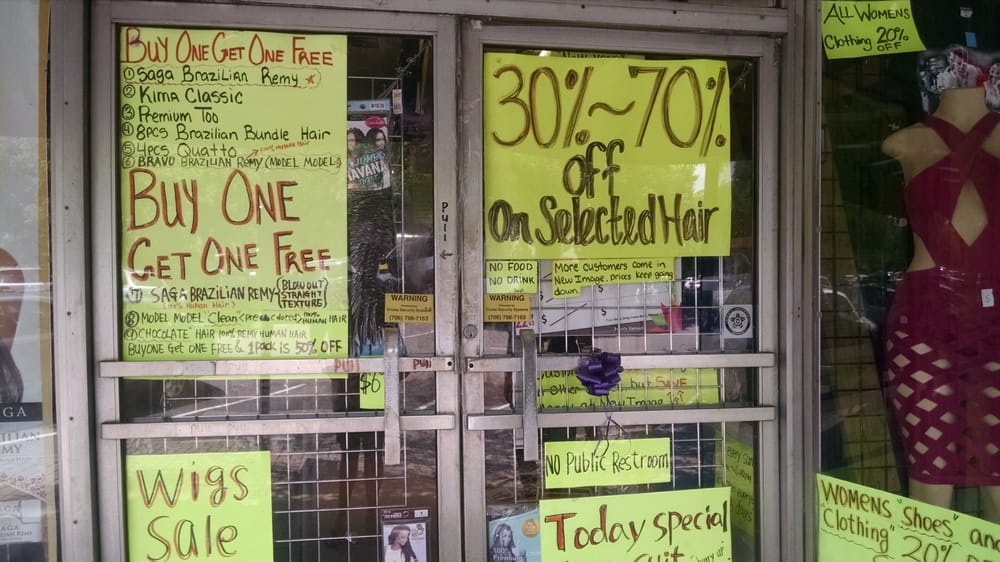 Buy One Get One Free
① Saga Brazilian Remy
② Kima Classic
③ Premium Too
④ 8pcs Brazilian Bundle Hair
⑤ 4pcs Quatto
100% Human Hair
⑥ Bravo Brazilian Remy (Model Model)
Buy One
Get One Free
⑦ Saga Brazilian Remy- (Blow out Straight Texture)
(100% Human Hair)
⑧ Model Model Clean 100% Human Hair
⑨ Chocolate" Hair 100% Remy Human Hair
Buy One Get One Free & 1 Pack is 50% Off
Pull
Pull
$6
Wigs
Sale
WARNING
(706) 798-7163
30%~70%
off
On Selected Hair
No Food
No Drink
More customers come in
New Image. prices keep going
down
WARNING
(706) 798-7163
but Save
at New Image
No Public Restroom
Today special
All Womens
Clothing 20%
OFF
Womens "Shoes" and
"Clothing" 20%
HAVANA
GA